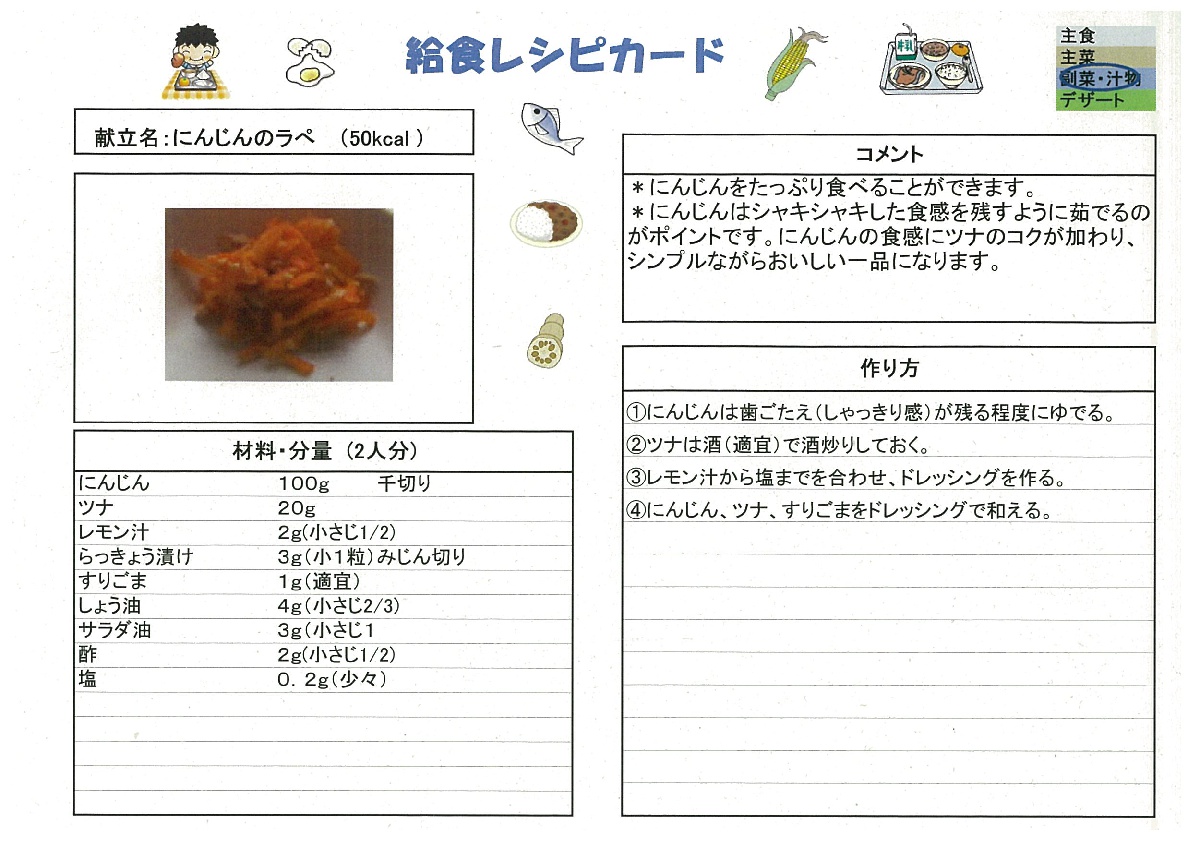 給食レシピカード
牛乳
主食
主菜
副菜・汁物
デザート
献立名：にんじんのラペ　（50kcal ）
材料・分量（2人分）
にんじん　100g　千切り
ツナ　20g
レモン汁　2g（小さじ1/2）
らっきょう漬け　3g（小１粒）みじん切り
すりごま　1g（適宜）
しょう油　4g（小さじ2/3）
サラダ油　3g（小さじ１
酢　2g（小さじ1/2）
塩　0．2g（少々）
コメント
＊にんじんをたっぷり食べることができます。
＊にんじんはシャキシャキした食感を残すように茹でるの
がポイントです。にんじんの食感にツナのコクが加わり、
シンプルながらおいしい一品になります。
作り方
①にんじんは歯ごたえ（しゃっきり感）が残る程度にゆでる。
②ツナは酒（適宜）で酒炒りしておく。
③レモン汁から塩までを合わせ、ドレッシングを作る。
④にんじん、ツナ、すりごまをドレッシングで和える。